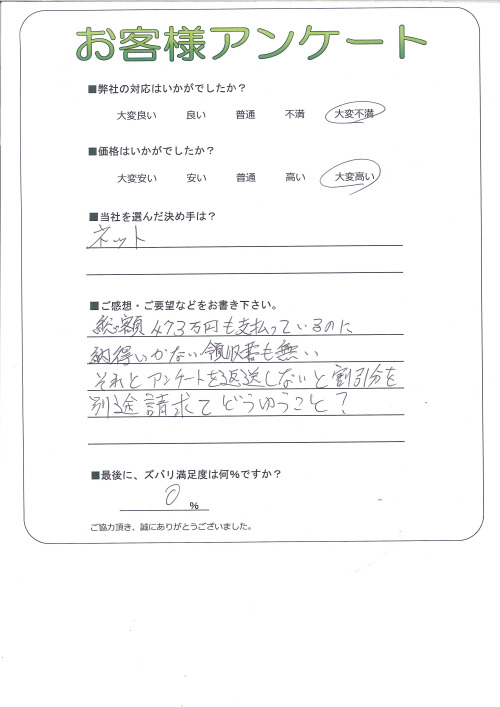 お客様アンケート
■弊社の対応はいかがでしたか？
大変良い 良い 普通 不満 大変不満
■価格はいかがでしたか？
大変安い 安い 普通 高い 大変高い
■当社を選んだ決め手は？
ネット
■ご感想・ご要望などをお書き下さい。
総額47.3万円も支払っているのに
納得いかない領収書も無い
それとアンケートを返送しないと割引分を
別途請求てどうゆうこと？
■最後に、ズバリ満足度は何%ですか？
0 %
ご協力頂き、誠にありがとうございました。